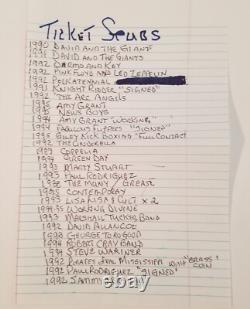 TICKET STUBS
1990 DAVID AND THE GIANTS
DAVID AND THE GIANTS
1992 DARMO AND KEY
1992 PINK FLOYD AND LED ZEPPELIN
1992 PELKATENNIAL
1991 KNIGHT RIDDER "SIGNED"
1992 THE ARC ANGELS
1995 AMY GRANT
1995 NEWS BOYS
1994 AMY GRANT "WORKING"
1994 FABULOUS FLYERS "SIGNED"
1995 GILEY KICK BOXING "FULL CONTACT"
1992 THE CINDERELLA
COPPELIA
1994 GREEN DAY
1993 MARTY STUART
1993 PAUL RODRIGUEZ
1996 THE MANY / GREASE
1998 CONTEMPORARY
1993 LISA LISA & CULT x 2
1994-95 WORKING DIVINE
1993 MARSHALL TUCKER BAND
1992 DAVID ALLAN COE
1998 GEORGE THOROGOOD
1994 ROBERT CRAY BAND
1994 STEVE WARINER
1992 PIRATES MISSISSIPPI WITH "BRASS" COIN
1992 PAUL RODRIGUEZ "SIGNED"
1992 SAMMY